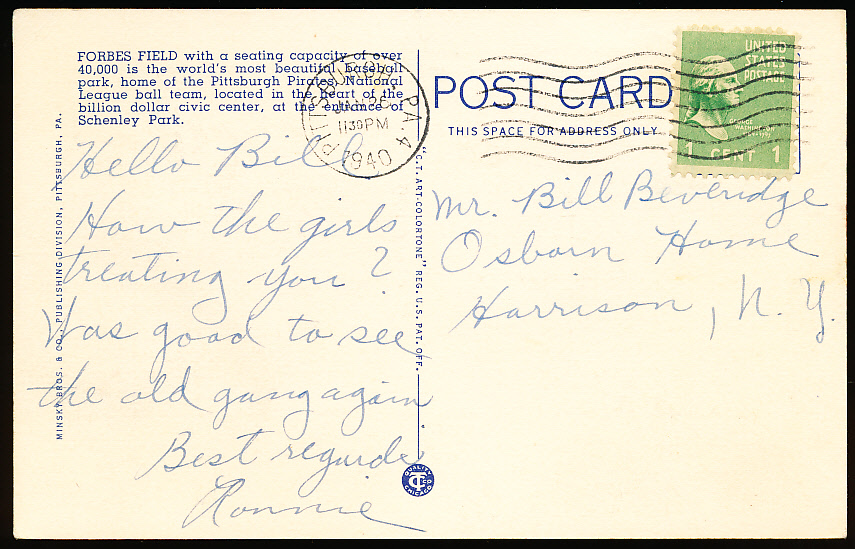 FORBES FIELD with a seating capacity of over
40,000 is the world's most beautiful baseball
park, home of the Pittsburgh Pirates, National
League ball team, located in the heart of the
billion dollar civic center, at the entrance of
Schenley Park.
PITTSBURGH PA. 4
1130PM
1940
POST CARD
THIS SPACE FOR ADDRESS ONLY
UNITED
STATES
POSTAGE
GEORGE
WASHINGTON
1 CENT 1
MINSKY BROS. & CO., PUBLISHING DIVISION, PITTSBURGH, PA.
"C.T. ART-COLORTONE" REG. U.S. PAT. OFF.
Hello Bill
How the girls
treating you?
Was good to see
the old gang again
Best regards
Ronnie
Mr. Bill Beveridge
Osborn Home
Harrison, N.Y.
QUALITY
CT
CHICAGO